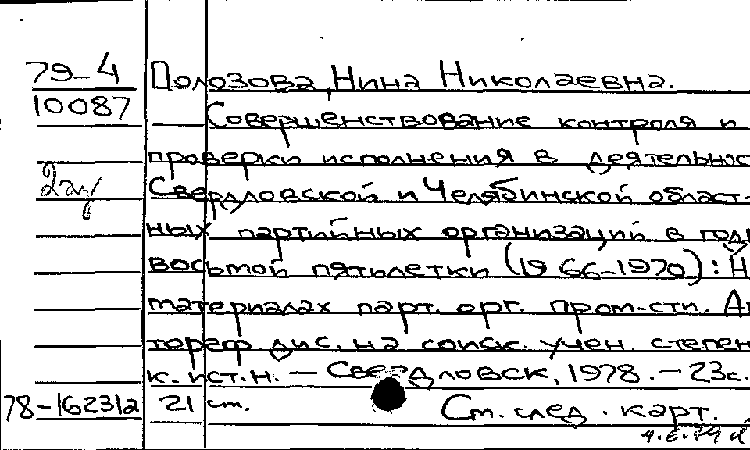 79-4
10087
Полозова, Нина Николаевна.
Совершенствование контроля и
проверки исполнения в деятельнос
Свердловской и Челябинской област-
ных партийных организаций в год
восьмой пятилетки (1966-1970): Н
материалах парт. орг. пром-сти. Ав
тореф дис. на соиск. учен. степен
к. ист. н. - Свердловск, 1978. - 23с.
78-16231a
21 см.
См. след. карт.